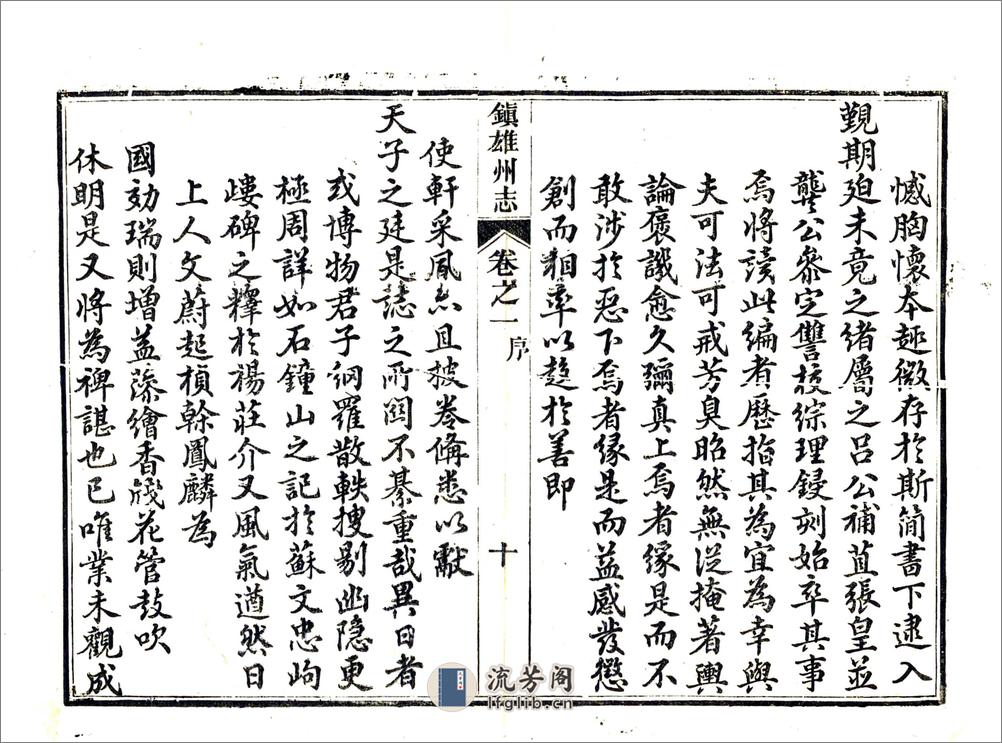 憾胸懷本趣微存於斯簡書下逮入
覲期廹未竟之緒屬之呂公補苴張皇並
龔公叅定讐挍綜理鋟刻始卒其事
焉將讀此編者歷指其為宜為幸與
夫可法可戒芳臭昭然無從掩著輿
論褒譏愈久彌真上焉者緣是而不
敢涉於惡下焉者緣是而益感發懲
創而相率以趨於善即
鎮雄州志
卷之一
序
十
使軒采風亦且披卷備悉以獻
天子之廷是誌之所關不綦重哉異日者
或博物君子網羅散軼搜剔幽隐更
極周詳如石鐘山之記於蘇文忠岣
嶁碑之釋於楊莊介又風氣遒然日
上人文蔚起楨榦鳳麟為
國効瑞則增益藻繪香牋花管鼓吹
休明是又將為裨諶也已唯業未觀成
流芳阁
lfglib.cn